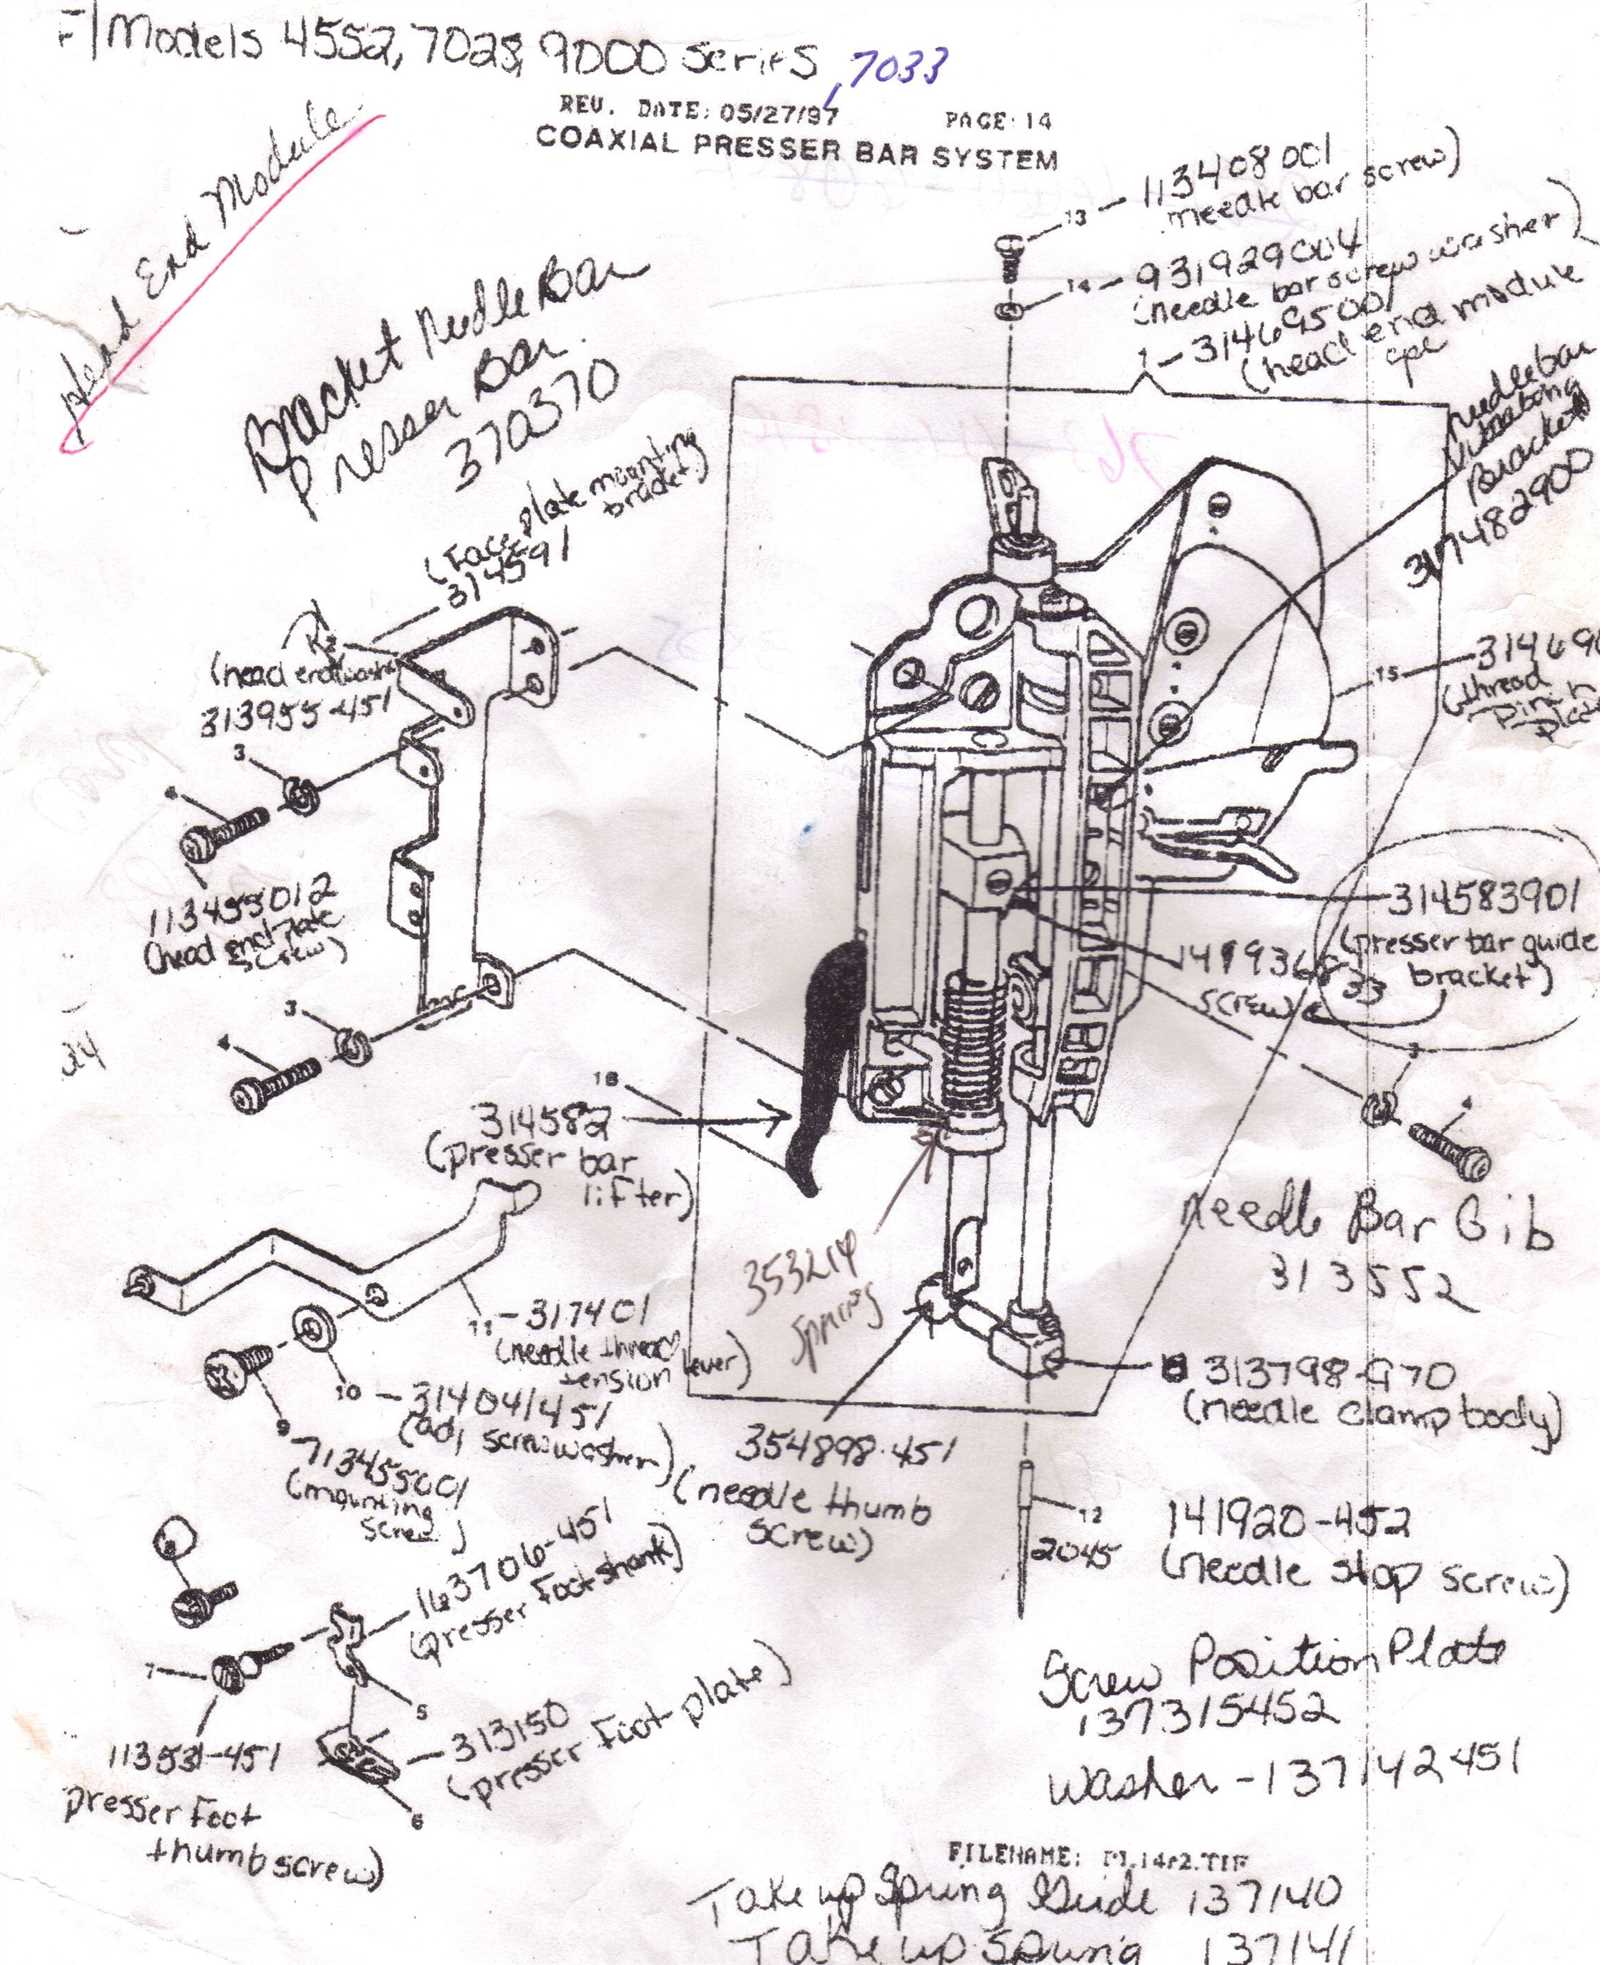 F/Models 4552, 7028, 9000 series, 7033
REV. DATE: 05/27/97 PAGE 14
COAXIAL PRESSER BAR SYSTEM
Head End Module
Bracket Needle Bar
Presser Bar
370370
13 - 113408001
needle bar screw)
14 - 931929004
(needle bar screw washer)
1 - 314695001
(head end module
cpl
needle bar
Bracket
317482900
(Face plate mounting
bracket)
314591
(head end washer
313955-451
3
4
113455012
(head end plate
screw)
3
4
15 - 31469
(thread
314583901
(presser bar guide
bracket)
33
screw)
3
4
18
314582
(presser bar
lifter)
353214
spring
Needle Bar Gib
313552
11 - 317401
(needle thread
tension lever)
10 - 314041451
(adj screw washer)
9
713455001
(mounting
screw)
313798-G70
(needle clamp body)
354898-451
(needle thumb
screw)
12
2045
141920-452
(needle stop screw)
163706-451
(presser foot shank)
7
5
113531-451
presser foot
thumbscrew)
313150
(presser foot plate)
6
Screw Position Plate
137315452
Washer - 137142451
FILENAME:
Take up Spring Guide 137140
Take up Spring 137141
24